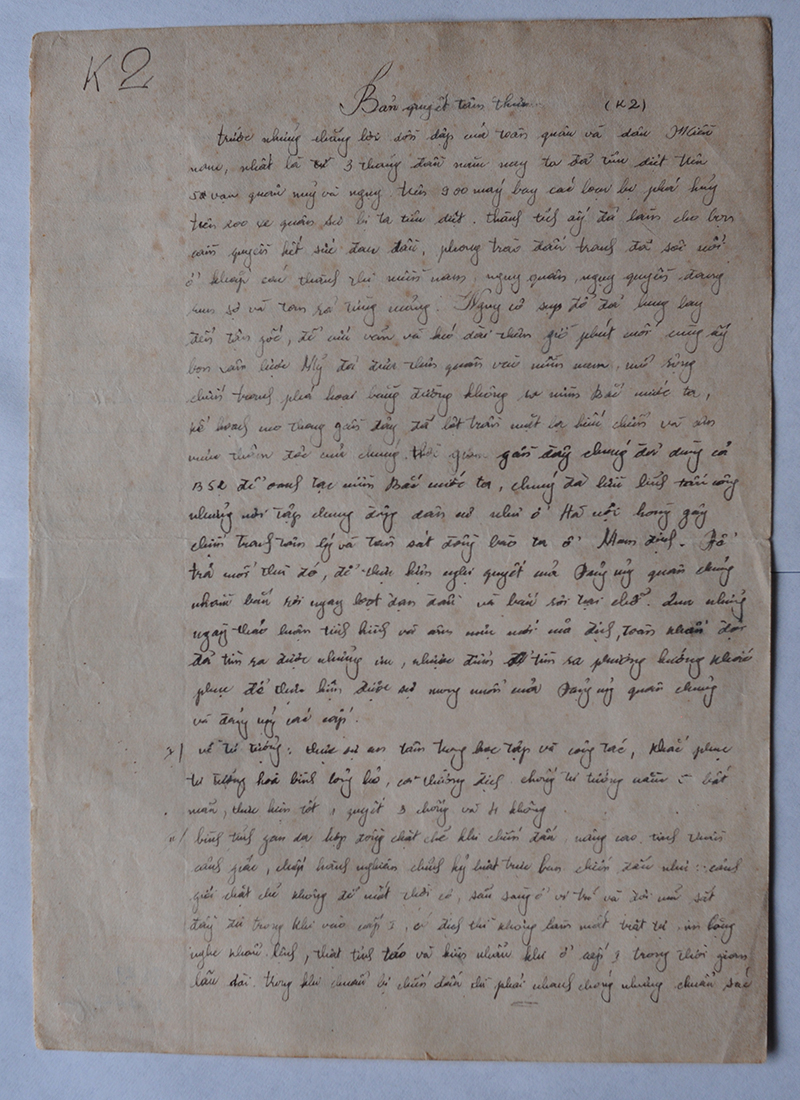 K2
Bản quyết tâm thư (K2)
trước những thắng lợi dồn dập của toàn quân và dân Miền
nam, nhất là 3 tháng đầu năm nay ta đã tiêu diệt trên
vạn quân mỹ và ngụy trên 900 máy bay các loại bị phá hủy
trên 200 xe quân sự bị ta tiêu diệt. thành tích ấy đã làm cho bọn
cầm quyền hết sức đau đầu, phong trào đấu tranh đã sôi nổi
ở khắp các thành thị miền nam, ngụy quân, ngụy quyền đang
run sợ và tan rã từng mảng. Nguy cơ sụp đổ đã lung lay
đến tận gốc, để cứu vãn và kéo dài thêm giờ phút cuối cùng ấy
bọn xâm lược Mỹ đã đưa thêm quân vào miền nam, mở rộng
chiến tranh phá hoại bằng đường không ra miền Bắc nước ta,
kế hoạch trong gần đây đã lột trần mặt lạ hiếu chiến và âm
mưu thâm độc của chúng. thời gian gần đây chúng đã dùng cả
B52 để oanh tạc miền Bắc nước ta, chúng đã liều lĩnh tấn công
những nơi tập chung đông dân cư như ở Hà nội hòng gây
chiến tranh tâm lý và tàn sát đồng bào ta ở Nam định.
trả mối thù đó, để thực hiện nghị quyết của Đảng ủy quân chủng
nhằm bắn rơi ngay loạt đạn đầu và bắn rơi tại chỗ. Qua những
ngày thảo luận tình hình và âm mưu mới của địch, toàn khẩu đội
đã tìm ra được những ưu, nhược điểm để tìm ra phương hướng khắc
phục để thực hiện được sự mong muốn của Đảng ủy quân chủng
và đảng ủy các cấp.
1/ về tư tưởng: thực sự an tâm trong học tập và công tác, khắc phục
tư tưởng hoà bình lỏng lẻo, coi thường địch, chống tư tưởng bất
mãn, thực hiện tốt 1 quyết 3 chống và 4 không.
bình tĩnh gan dạ hiệp đồng chặt chẽ khi chiến đấu, nâng cao tinh thần
cảnh giác, chấp hành nghiêm chỉnh kỷ luật trực ban chiến đấu như: cảnh
giới chặt chẽ không để mất thời cơ, sẵn sàng ở vị trí và đội mũ sắt
đầy đủ trong khi vào cấp 1, có địch thì không làm mất trật tự, im lặng
nghe khẩu lệnh, thật tỉnh táo và kiên nhẫn khi ở cấp 1 trong thời gian
lâu dài. trong khi chuẩn bị chiến đấu thì phải nhanh chóng nhưng chuẩn xác